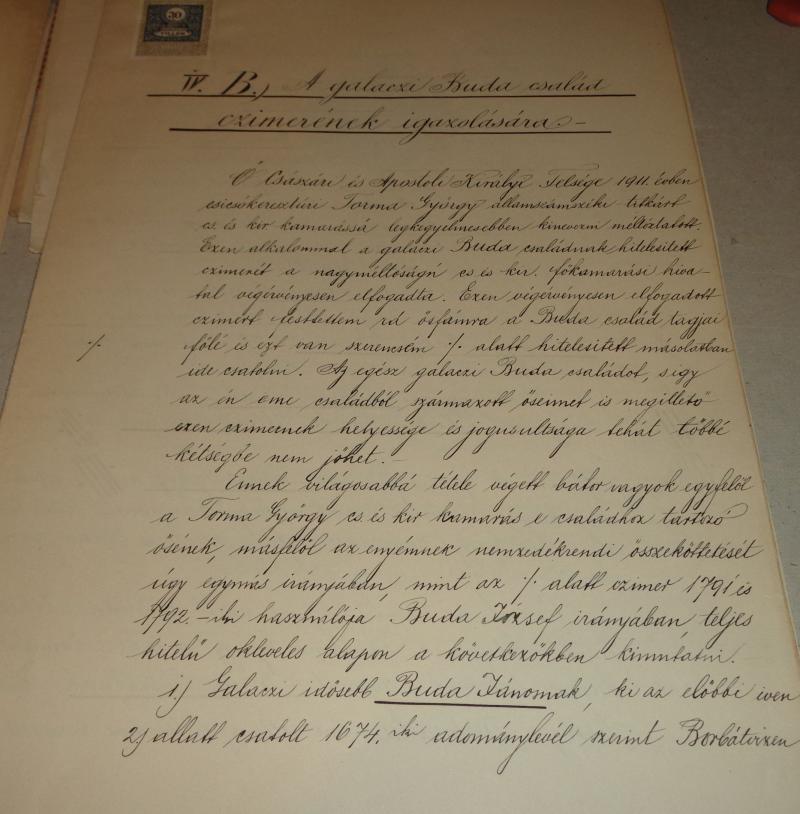 30
FILLÉR
IV. B.) A galaczi Buda család
czimerének igazolására.-
Ő Császári és Apostoli Királyi Felsége 1911. évben
csicsókeresztúri Torma György államszámszéki titkárt
cs. és kir kamarássá legkegyelmesebben kinevezni méltóztatott.
Ezen alkalommal a galaczi Buda családnak hitelesitett
czimerét a nagyméltóságú cs. és kir. főkamarási hiva-
tal végérvényesen elfogadta. Ezen végérvényesen elfogadott
czimert festettem rá ősfámra a Buda család tagjai
·/· fölé és ezt van szerencsém ·/· alatt hitelesitett másolatban
ide csatolni. Az egész galaczi Buda családot, s igy
az én eme családból származott őseimet is megillető
ezen czimernek helyessége és jogosultsága tehát többé
kétségbe nem jöhet.-
Ennek világosabbá tétele végett bátor vagyok egyfelől
a Torma György cs. és kir kamarás e családhoz tartozó
ősének, másfelől az enyémnek nemzedékrendi összeköttetését
úgy egymás irányjában, mint az ·/· alatt czimer 1791 és
1792.-iki használója Buda József irányjában, teljes
hitelű okleveles alapon a következőkben kimutatni.
1.) Galaczi idősebb Buda Jánosnak, ki az előbbi iven
2) allatt csatolt 1674.iki adománylevél szerint Borbátvizen